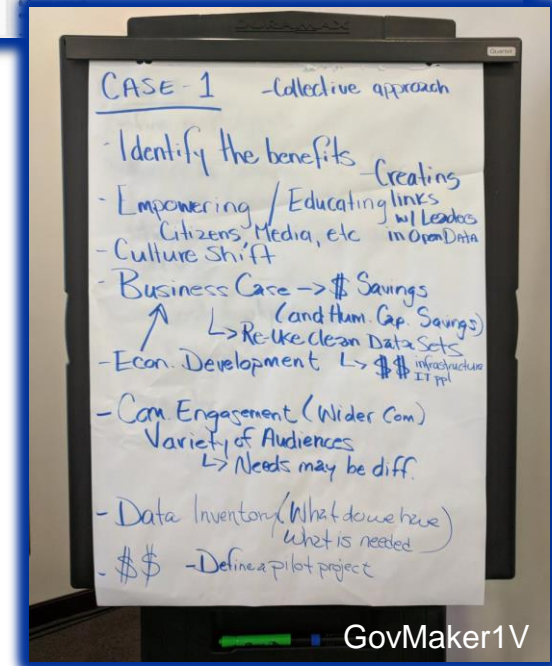 DURAMAX
Quartet
CASE-1 -Collective approach
- Identify the benefits
- Creating
links
w/ Leaders
in Open Data
- Empowering / Educating
Citizens, Media, etc
- Culture Shift
- Business Case -> $ Savings
(and Hum. Cap. Savings)
↳ Re-Use Clean Data Sets
- Econ. Development ↳ $$ infrastructure
IT ppl
- Com. Engagement (Wider Com)
Variety of Audiences
↳ Needs may be diff.
- Data Inventory (What do we have)
What is needed
- $$ - Define a pilot project
GovMaker1V